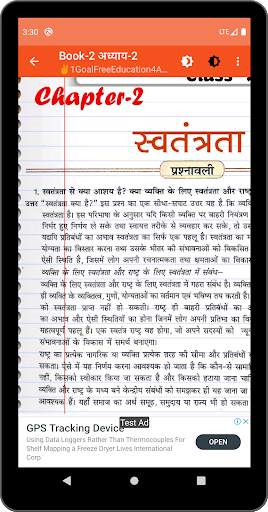 3:30
LTE
Book-2 अध्याय-2
1GoalFreeEducation4A...
Class
Chapter-2
स्वतंत्रता
प्रश्नावली
1. स्वतंत्रता से क्या आशय है? क्या व्यक्ति के लिए स्वतंत्रता और राष्ट्र
उत्तर "स्वतंत्रता क्या है?" इस प्रश्न का एक सीधा-सपाट उत्तर यह है कि
स्वतंत्रता है। इस परिभाषा के अनुसार यदि किसी व्यक्ति पर बाहरी नियंत्रण
निर्भर हुए निर्णय ले सके तथा स्वायत्त तरीके से व्यवहार कर सके, तो उस
यद्यपि प्रतिबंधों का अभाव स्वतंत्रता का सिर्फ एक पहलू है। स्वतंत्रता का म
योग्यता का विस्तार करना तथा उसके भीतर की संभावनाओं को विकसित
ऐसी स्थिति है, जिसमें लोग अपनी रचनात्मकता तथा क्षमताओं का विकास
व्यक्ति के लिए स्वतंत्रता और राष्ट्र के लिए स्वतंत्रता में संबंध–
व्यक्ति के लिए स्वतंत्रता और राष्ट्र के लिए स्वतंत्रता में गहरा संबंध है। व्यक्ति
ही व्यक्ति के व्यक्तित्व, गुणों, योग्यताओं का वर्तमान एवं भविष्य तय करती है।
को स्वतंत्रता प्राप्त नहीं हो सकती। राष्ट्र ही बाहरी प्रतिबंधों का अ
का अभाव और ऐसी स्थितियों का होना जिनमें लोग अपनी प्रतिभा का वि
महत्वपूर्ण पहलू हैं। एक स्वतंत्र राष्ट्र वह होगा, जो अपने सदस्यों को
संभावनाओं के विकास में समर्थ बनाएगा।
राष्ट्र का प्रत्येक नागरिक या व्यक्ति प्रत्येक तरह की सीमा और प्रतिबंधों
सकता। ऐसे में यह निर्णय करना आवश्यक हो जाता है कि कौन-से सामा
नहीं, किसको स्वीकार किया जा सकता है और किसको हटाया जाना चाहि
व्यक्ति और राष्ट्र के मध्य बने केन्द्रीय संबंधों को समझदारी का जाना ज
आवश्यक हैं। यहाँ समाज का अर्थ समूह, समुदाय या राज्य भी हो सकता
Test Ad
GPS Tracking Device
Using Data Loggers Rather Than Thermocouples For
Shelf Mapping a Freeze Dryer Lives International
Corp
OPEN